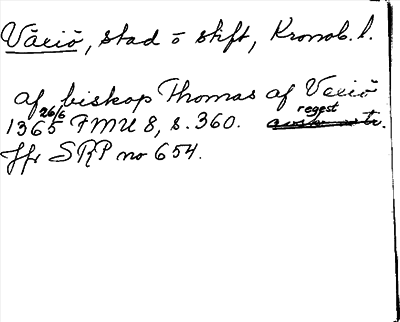 Växiö, stad o stift, Kronob. l.
af biskop Thomas af Vexiö
1365 26/6 FMU 8, s. 360. regest
Jfr SRP no 654.